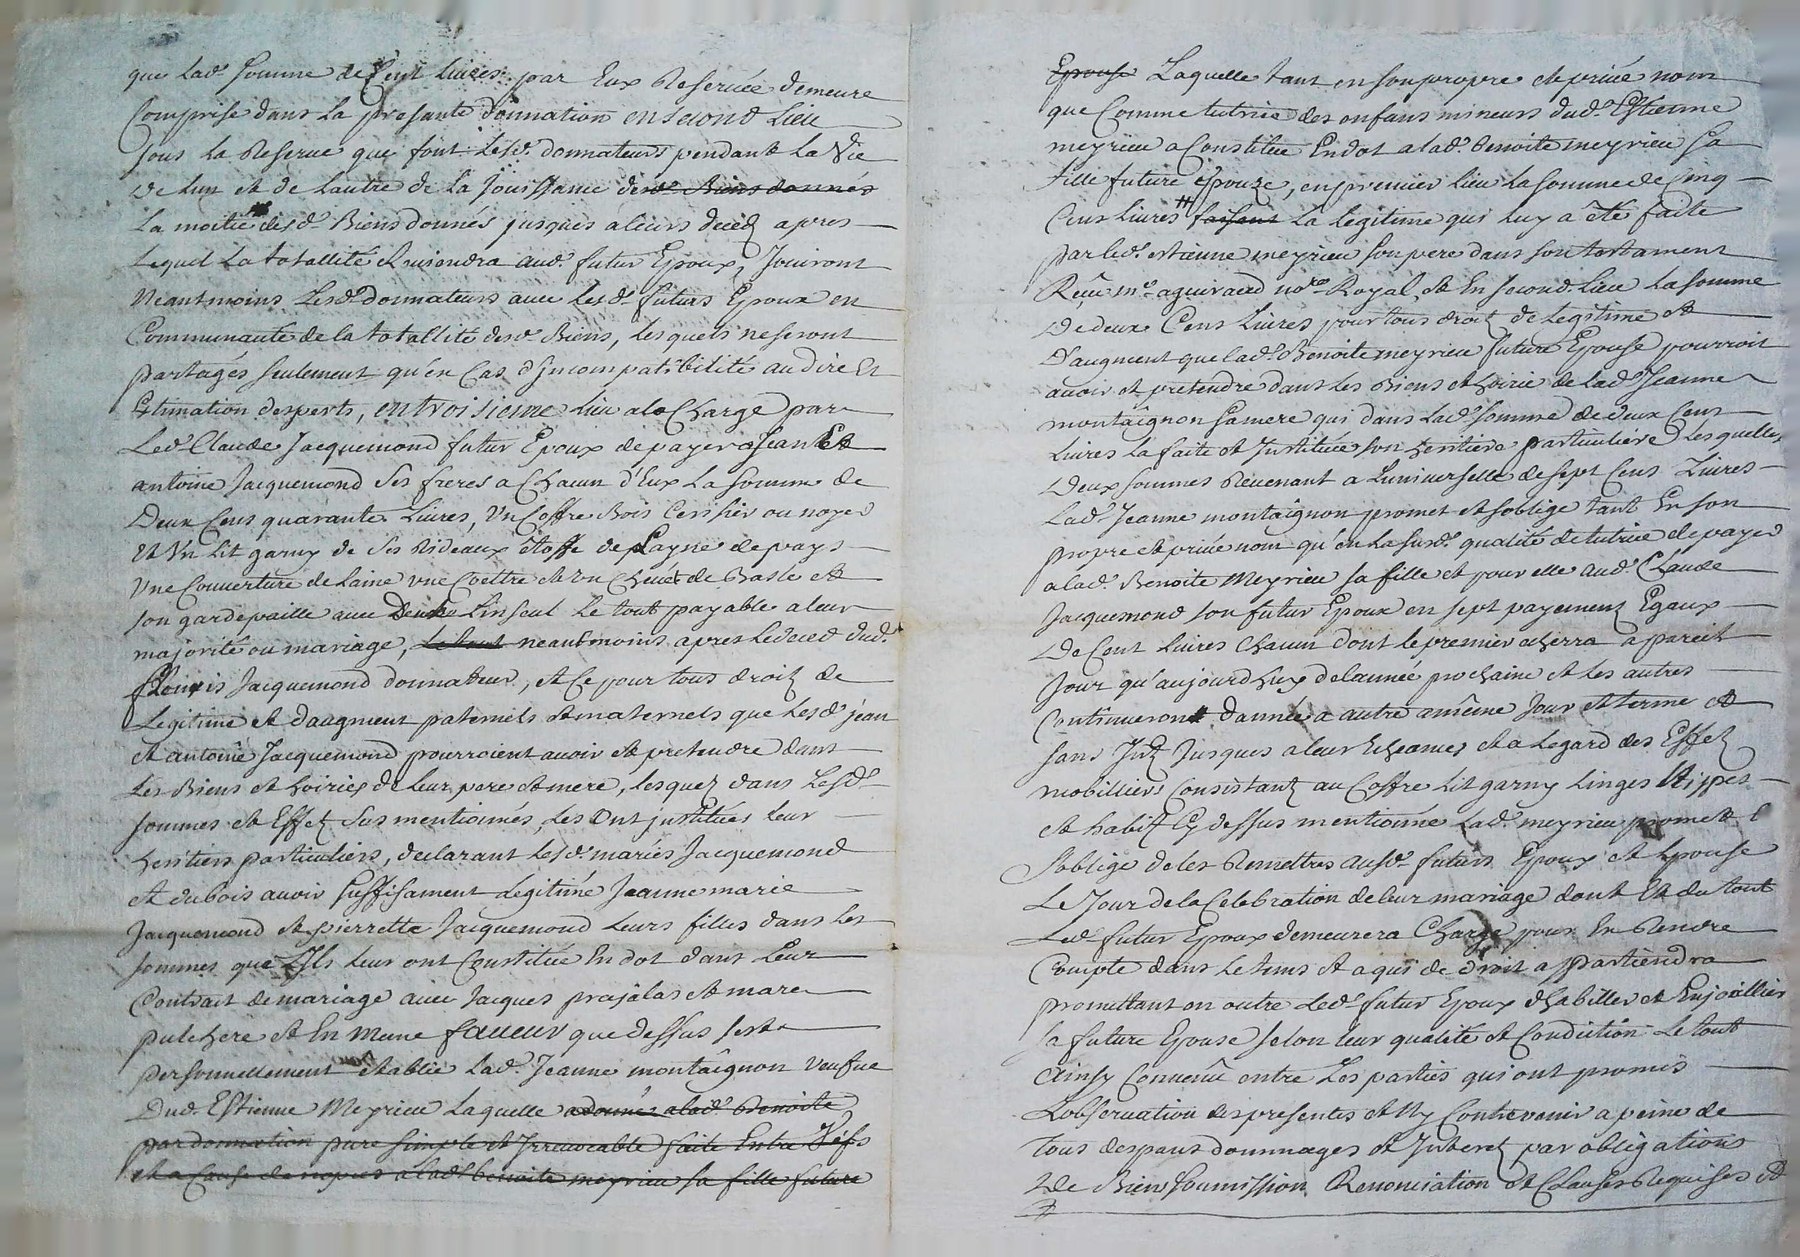 que lad. somme de Cent livres par Eux Reservée demeure
Comprise dans la presante donnation en second Lieu
sous la Reserve que font lesd. donnateurs pendant la Vie
de lun et de lautre de la Jouissance desd. Biens donnés
La moitié desd. Biens donnés jusques a leurs decedz apres
Lequel la totallité Reviendra aud. futur Epoux, Jouiront
Neantmoins lesd. donnateurs avec lesd. futurs Epoux en
Communauté de la totallité desd. Biens, lesquels ne seront
partagés seulement qu'en Cas d'Incompatibilité au dire Et
Estimation desperts, en troisieme lieu a la Charge par
Led. Claude Jacquemond futur Epoux de payer a Jean Et
antoine Jacquemond ses freres a Chacun d'Eux la somme de
Deux Cens quarante Livres, Un Coffre Bois Cerisier ou noyer
Et Un lit garny de ses Rideaux étoffe de Layne de pays
Une Couverture de laine une Coettre et un Chevet de Basle et
son gardepaille avec Deux Linseul le tout payable a leur
majorité ou mariage, le tout neantmoins apres le deced dud.
Jacquemond donnateur, et Ce pour tous droitz de
Legitime et daugment paternels et maternels que lesd. jean
et antoine Jacquemond pourroient avoir et pretendre dans
Les Biens et hoiries de leur pere et mere, lesquez dans lesd.
sommes et Effetz sus mentionnés, les Ont justitués leur
heritiers particuliers, declarant lesd. mariés Jacquemond
et dubois avoir suffisament legitimé Jeanne marie
Jacquemond et pierrette Jacquemond leurs filles dans les
sommes que Ils leur ont Constituée En dot dans Leur
Contrait de mariage avec Jacques prajalas et marc
pulchere et En meme faveur que dessus sest
personnellement établie Lad. Jeanne montaîgnon Veufve
Dud. Estienne Meyrieu laquelle a donné a lad. Benoite
par donnation pure simple et Irrevocable faite Entre Vifs
et a Cause de nopces a lad. benoite meyrieu sa fille future
Epouse Laquelle tant en son propre et privé nom
que Comme tutrice des enfans mineurs dud. Estienne
meyrieu a Constituée En dot a lad. Benoite meyrieu sa
fille future épouze, en premier lieu la somme de Cinq
Cens livres faisant la legitime qui luy a été faite
par led. estienne meyrieu son pere dans son testament
Reçu me. aguiraud notre Royal, et En second Lieu la somme
De deux Cens livres pour tous droitz de legitime et
D'augment que lad. Benoite meyrieu future Epouse pourroit
avoir et pretendre dans les Biens et hoirie de lad. Jeanne
montaîgnon sa mere qui dans lad. somme de deux Cens
Livres la faite et Justituée son heritiere particuliere Lesquelles
Deux sommes Revenant a luniverselle de sept Cens Livres
Lad. Jeanne montaîgnon promet et soblige tant En son
propre et privé nom qu'en la susd. qualité de tutrice de payer
a lad. Benoite Meyrieu sa fille et pour elle aud. Claude
Jacquemond son futur Epoux en sept payement Egaux
De Cent livres Chacun dont le premier echerra a pareil
Jour qu'aujourdhuy de lannée prochaine et les autres
Continueront dannée a autre a même Jour et terme et
sans Jntz Jusques a leur Echeances et a legard des Effetz
mobilliers Consistantz au Coffre lit garny linges Nippes
et habitz Cy dessus mentionné Lad. meyrieu promet et
Soblige de les Remettre ausd. futurs Epoux et Epouse
Le Jour de la Celebration de leur mariage dont Et du tout
Led. futur Epoux demeurera Chargé pour En Rendre
Compte dans le tems et a qui de droit appartiendra
promettant en outre Led. futur Epoux d'habiller et Enjoallier
sa future Epouse selon leur qualité et Condiction le tout
Ainsy Convenû entre Les parties qui ont promis
Lobservation des presentes et Ny Contrevenir a peine de
tous despans dommages et Jnteretz par obligations
De Biens soumission Renonciation et Clauses Requises et